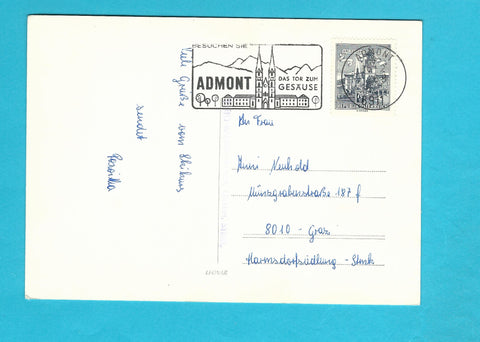 BESUCHEN SIE
ADMONT
DAS TOR ZUM
GESÄUSE
ADMONT
Viele Grüße vom Skikurs
sendet
Roswitha
An Frau
Anni Neuhold
Münzgrabenstraße 187 f
8010 - Graz
Harmsdorfsiedlung -